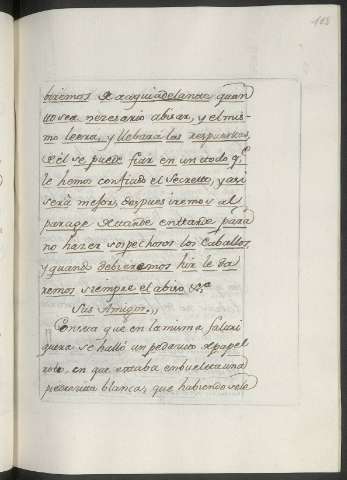 108
biremos de aqui adelante quan
to sea nezesario abisar, y el mis-
mo leera, y llebará las respuestas,
de él se puede fiar en un todo q.e
le hemos confiado el Secreto, y asi
será mejor, despues iremos al
parage de tarde en tarde para
no hazer sospechosos los caballos
y quando deberemos hir le da
remos siempre el abiso &.a
Sus Amigos.,,
Consta que en la misma faltri
quera se halló un pedazito de papel
roto, en que estaba embuelta una
piedrezita blanca, que habiendo sido